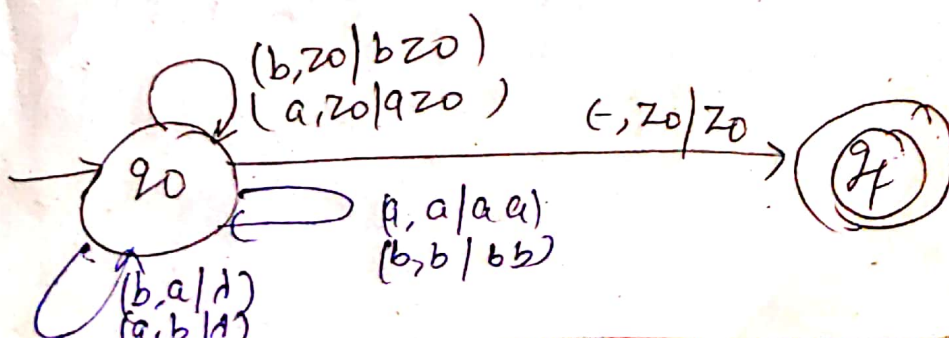 (b,z0|bz0)
(a,z0|az0)
ϵ,z0|z0
q0
qf
(a,a|aa)
(b,b|bb)
(b,a|λ)
(a,b|λ)